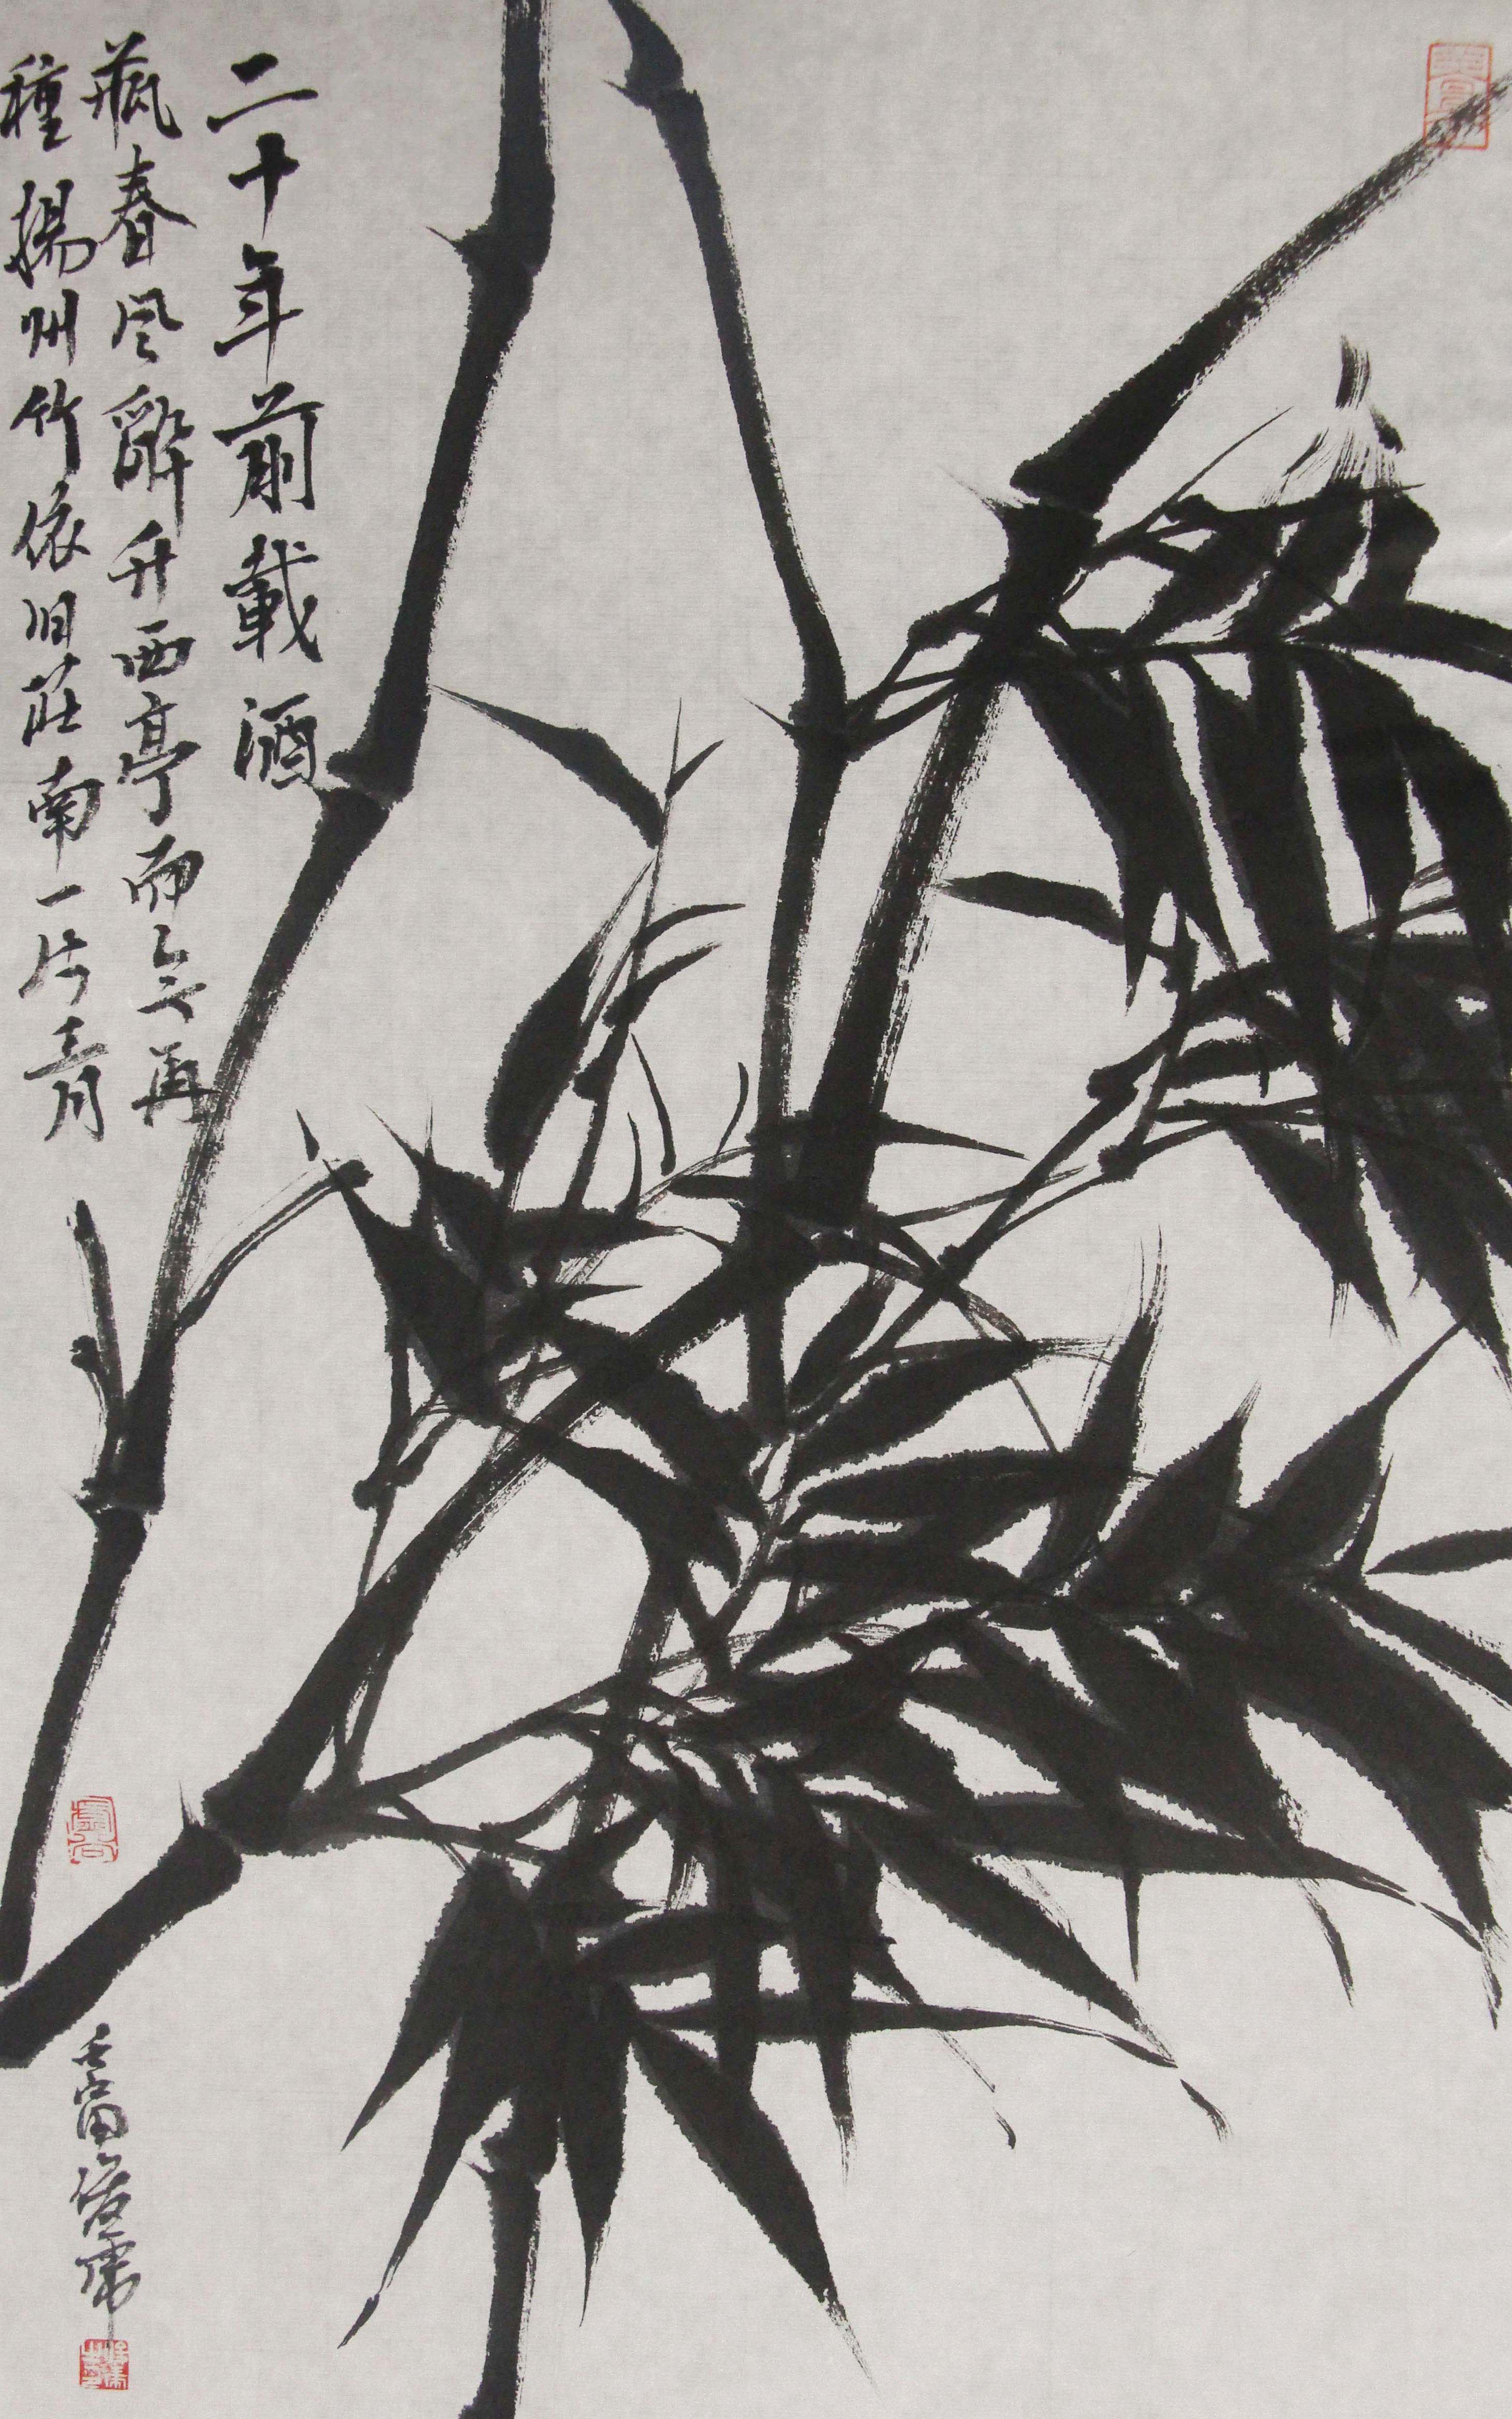 二十年前載酒
瓶春风醉升西亭而今再
種揚州竹依旧莊南一片青
壬寅俊虎